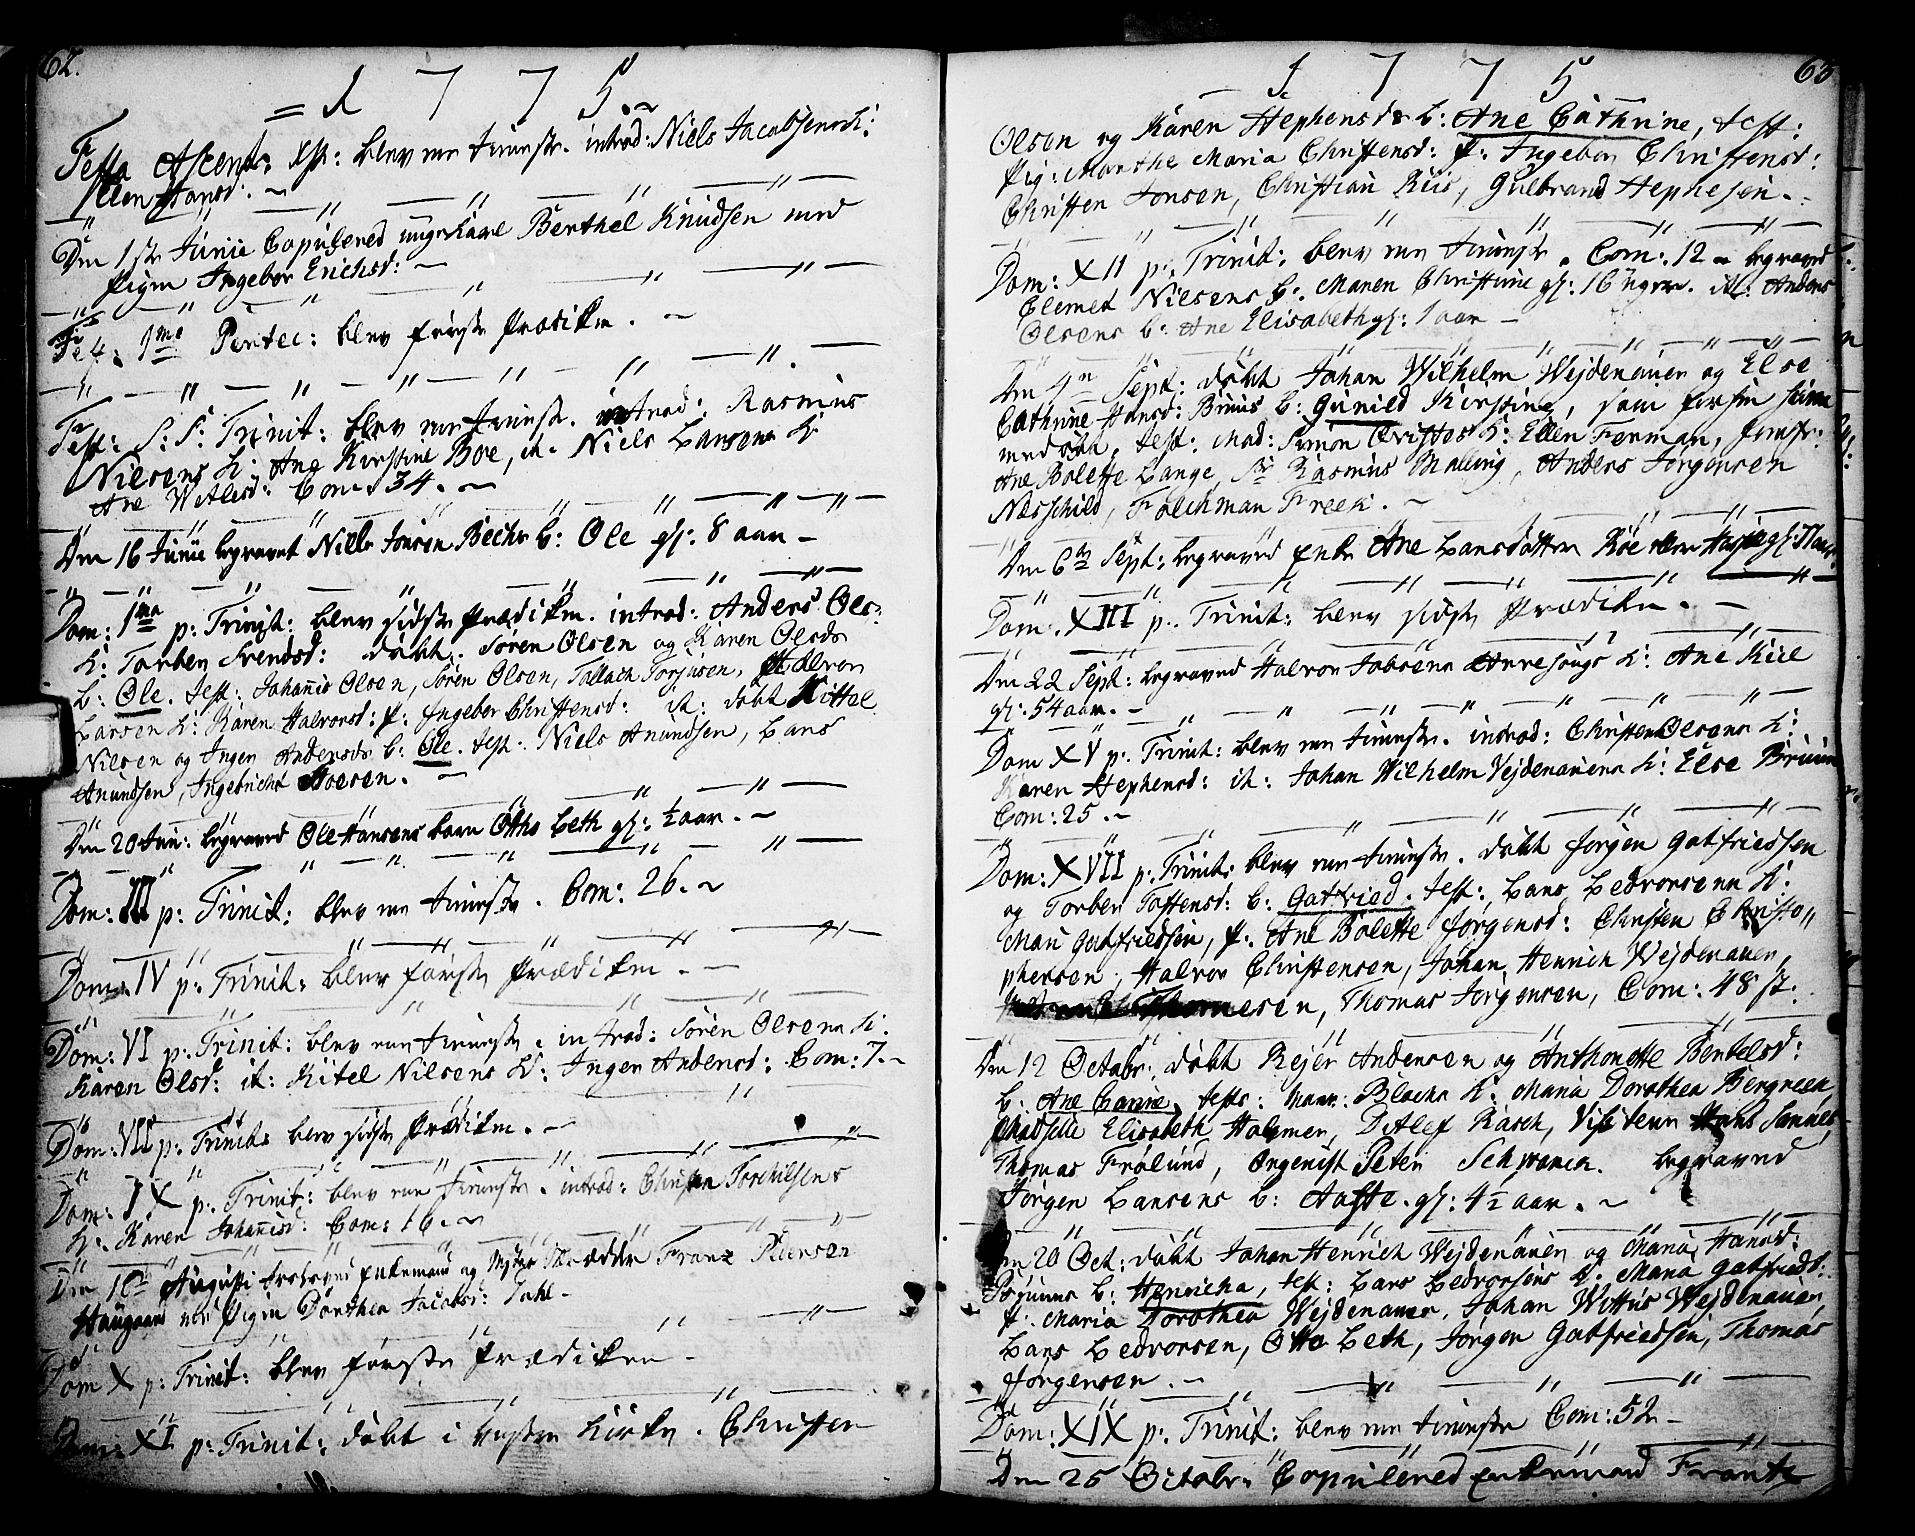 62.
= 1 7 7 5.~
Festo Ascens: Xsti: blev een tieneste. introd: Niels Jacobsens h:
Ellen Hansd: ~
Den 1ste Junii Copulered ungekarl Berthel Knudsen med
Pigen Ingebor Erichsd: ~
Fest: 1mo Pentec: blev første Prædiken. ~
Fest: S: S: Trinit: blev een tieneste. introd: Rasmus
Nilsens h: Ane Kirstine Boe, it. Niels Larsens h:
Ane Wetlesd: Com: 34. ~
Den 16 Junii begravet Niels Jensen Bechs b: Ole gl: 8 aar ~
Dom: 1ma p: Trinit: blev sidste Prædiken. introd: Anders Ols:
h: Torber Svendsd: døbt Sören Olsen og Karen Olsds
b: Ole. test: Johanis Olsen, Sören Olsen, Tallach Torjusen, Halvor
Larsen h: Karen Halvorsd: p: Ingebor Christensd: it: døbt Kittel
Nilsen og Inger Andersds b: Ole. test: Niels Anundsen, Lars
Anundsen, Ingebricht Hoesen. ~
Den 20 Jun: begraved Ole Hansens barn Otho Leth gl: ½ aar. ~
Dom: III p: Trinit: blev een tieneste. Com: 26. ~
Dom: IV p: Trinit: blev første Prædiken. ~
Dom: VI p: Trinit: blev een tieneste. introd: Sören Olsens h:
Karen Olsd: it: Kitel Nilsens h: Inger Andersd: Com: 7. ~
Dom: VII p: Trinit: blev sidste Prædiken. ~
Dom: IX p: Trinit: blev een tieneste. introd: Christen Torkilsens
h: Karen Johanisd: Com: 16. ~
Den 10de Augusti trolovet Enkemand og Mester Skrædder Frans Clausen
Haugaard med Pigen Dorthea Jacobsd: Dahl ~
Dom X p: Trinit: blev første Prædiken ~
Dom: XI p: Trinit: døbt i vestre Kirke. Christen
63
1 7 7 5
Olsen og Karen Stephensds b: Ane Cathrine, test:
Pig: Marthe Maria Christensd: p: Ingebor Christensd:
Christen Jonsen, Christian Riis, Gulbrand Stephesen.
Dom: XII p: Trinit: blev een tieneste. Com: 12 ~ begraved
Clemet Nilsens b: Maren Christine gl: 16 uger. it: Anders
Olsens b: Ane Elisabeth gl: 1 aar ~
Den 4n Sept: døbt Johan Wilhelm Wejdenauer og Else
Cathrine Hansd: Bruus b: Gunild Kirstine, som
test: Mad: Simon h: Ellen Ferman, Jomfr:
Ane Bolette Lange, Sr Rasmus Malling, Anders Jörgensen
Næsschild, Folchman Freek. ~
Den 6te Sept: begraved Enke Ane Larsdatter Röe
Dom: XIII p: Trinit: blev sidste Prædiken. ~
Den 22 Sept: begraved Halvor Jobsens h: Ane Kiil
gl: 54 aar. ~
Dom XV p: Trinit: blev een tieneste. introd: Christen Olsens h:
Karen Stephensd: it: Johan Wilhelm Wejdenauers h: Else Bruun
Com: 25. ~
Dom: XVII p: Trinit: blev een tieneste. døbt Jörgen Gotfriedsen
og Torber Tostensd: b: Gotfried. test: Lars Ledvorsens h:
Mari Gotfriedsen, p: Ane Bolette Jörgensd: Christen Christo//
phersen, Halvor Christensen, Johan Henrich Wejdenauer,
Thomas Jörgensen, Com: 48 st:
Den 12 Octobr: døbt Rejer Andersen og Anthonette Bentelsd:
b: Ane Carine, test: Blachs h: Maria Dorothea Bergreen
Madselle Elisabeth Holmer, Ditlef Rasch, Visiteur
Thomas Frölund, Organist Peter Schwanck. begraved
Jörgen Larsens b: Aaste. gl: 4½ aar. ~
Den 20 Oct: døbt Johan Henrich Wejdenauer og Maria Hansd:
b: Henricha, test: Lars Ledvorsens h: Maria Gotfriedsd:
p: Maria Dorothea Wejdenauer, Johan Wittus Wejdenauer,
Lars Ledvorsen, Otto Leth, Jörgen Gotfriedsen, Thomas
Jörgensen. ~
Dom: XIX p: Trinit: blev een tieneste Com: 52 ~
Den 25 Octobr: Copulered Enkemand Frantz